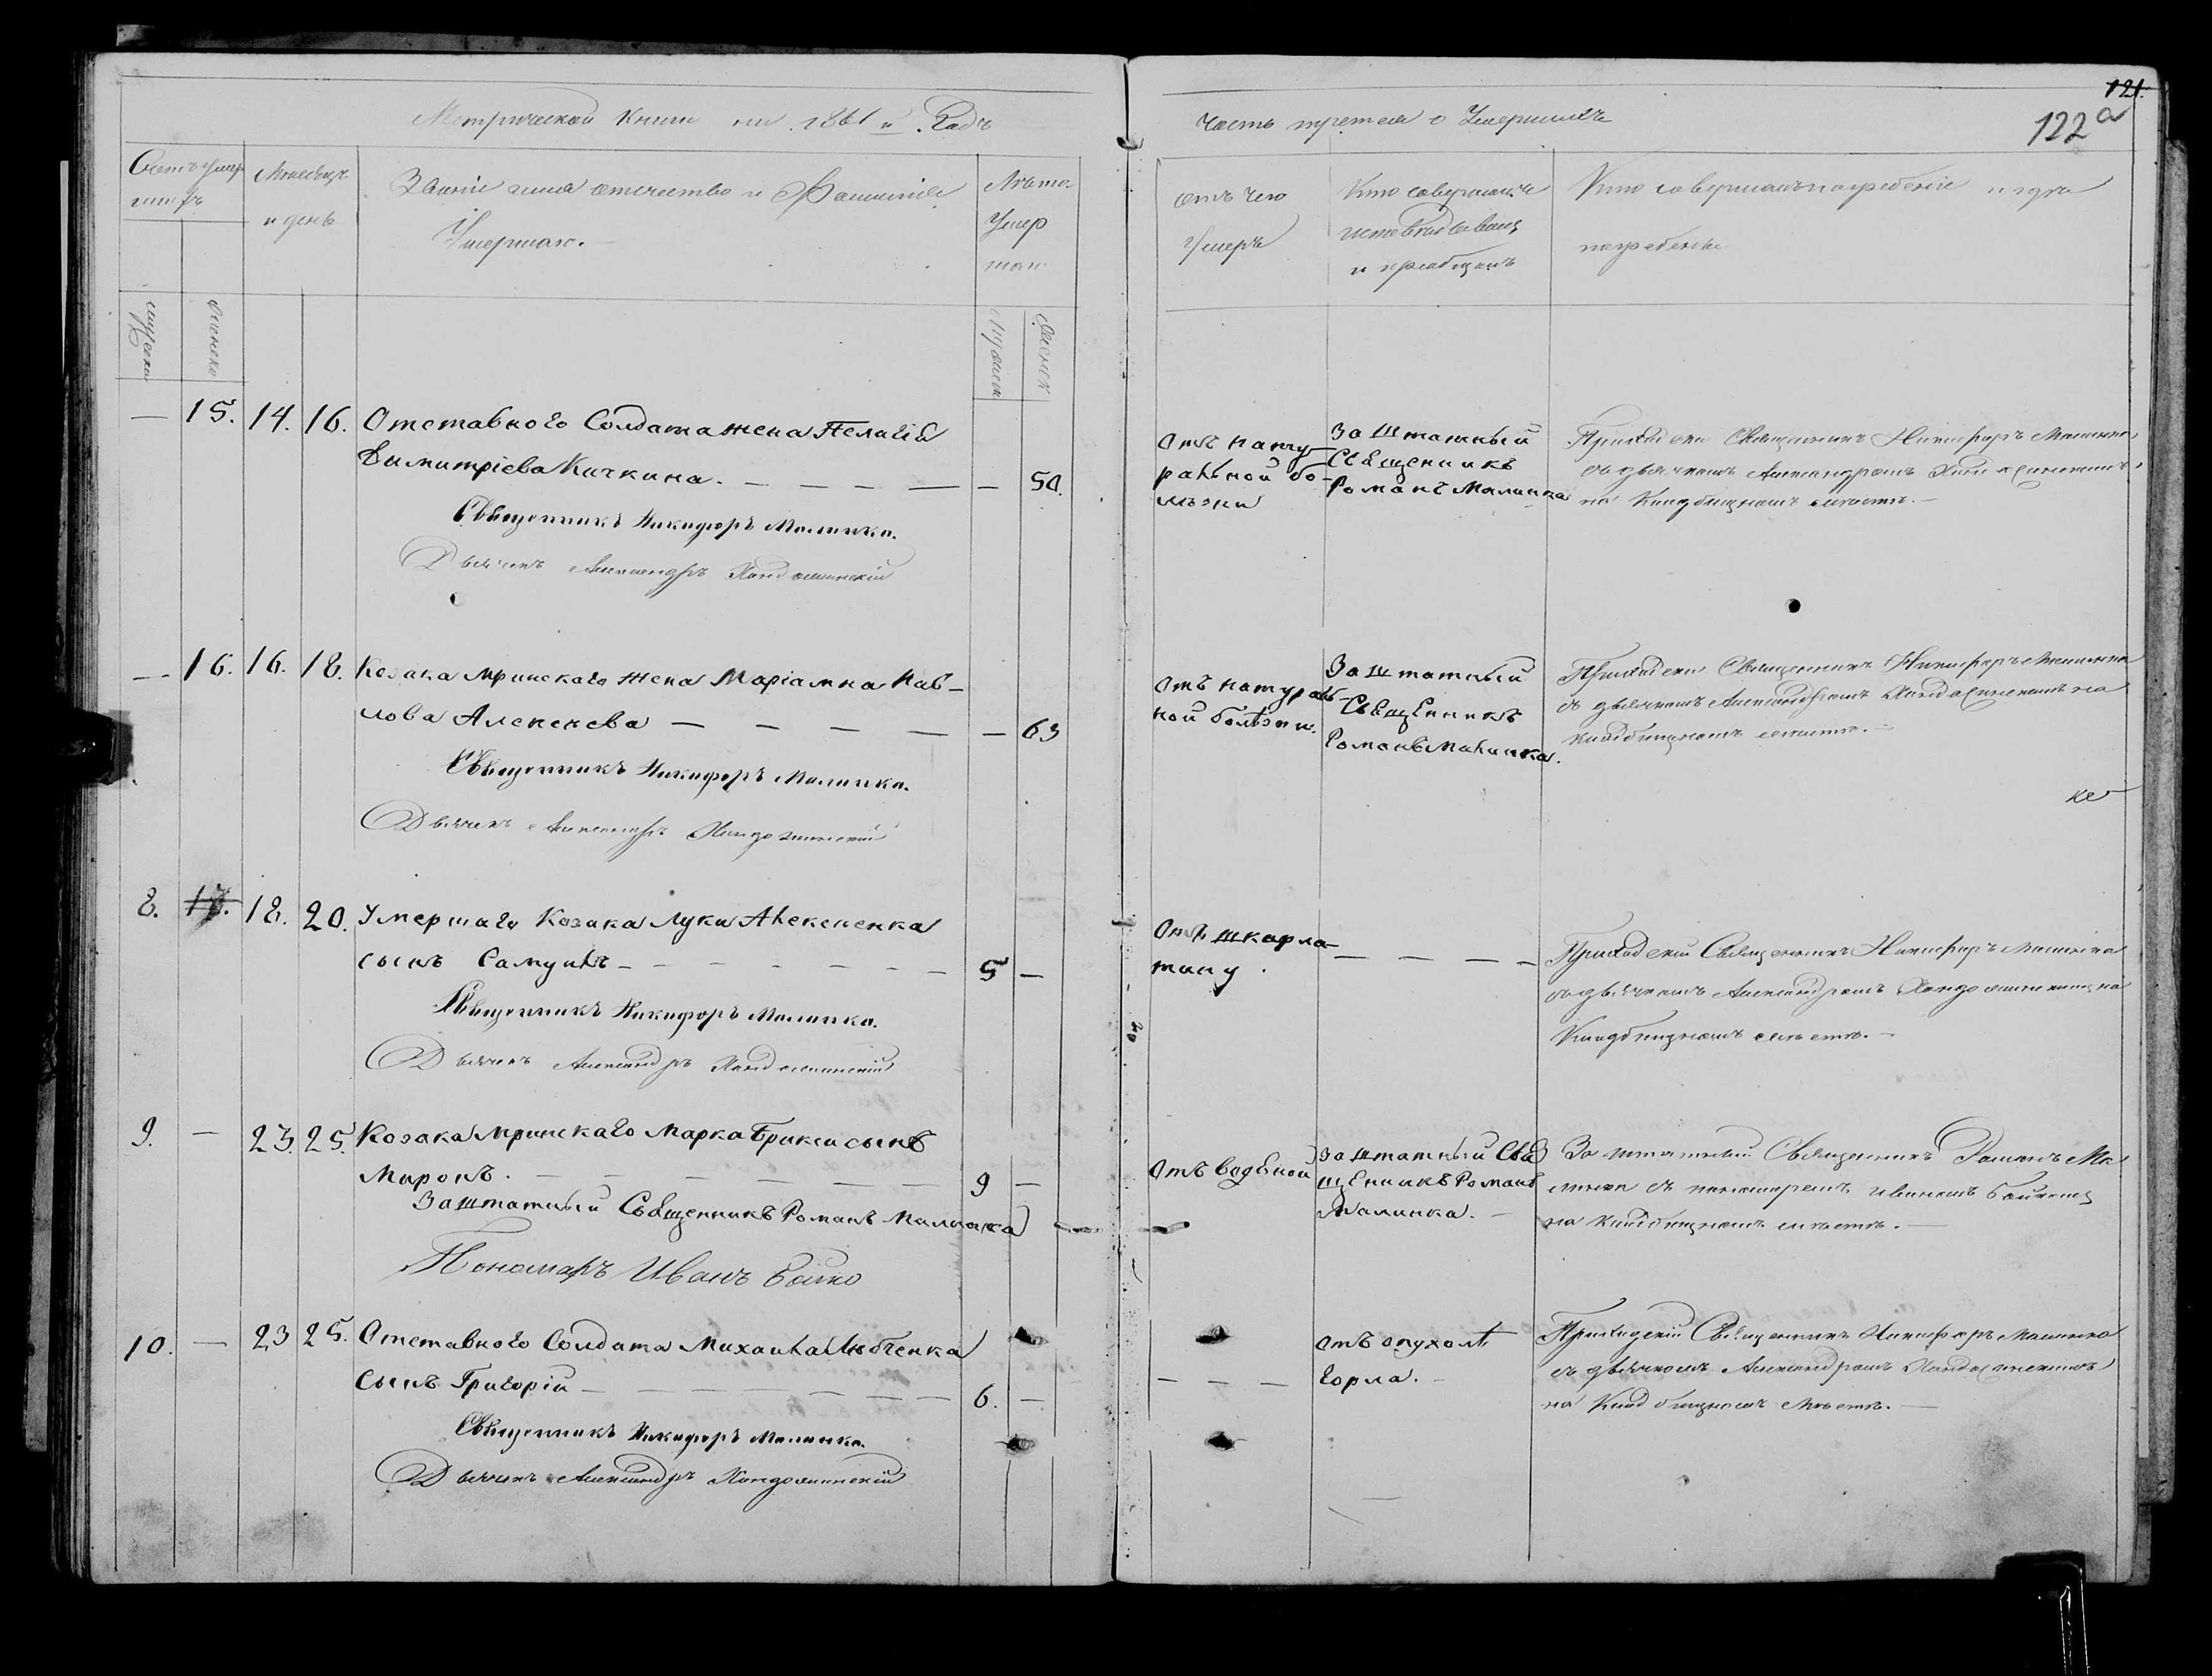 Метрической книги на 1861 й Годъ
Счетъ умер
шихъ
Мѣсяцъ
и день
Званіе имя отчество и Фамилія
Умершаго.
Лѣта
Умер
шаго
мужеска
женска
мужеск
женск
— 15. 14. 16. Отставного Солдата жена Пелагія
Димитріева Кичкина. — — — — — 50.
Священникъ Никифоръ Малинка.
Дьячекъ Александръ
— 16. 16. 18. Козака Мринскаго жена Маріамна Пав-
лова Алексеева — — — — — 63
Священникъ Никифоръ Малинка.
Дьячекъ Александръ
8. 17. 18. 20. Умершаго Козака Луки Алексеенка
сынъ Самуилъ — — — — — — — 5 —
Священникъ Никифоръ Малинка.
Дьячекъ Александръ
9. — 23. 25. Козака Мринскаго Марка сынъ
Миронъ. — — — — — — 9 —
Заштатный Священникъ Романъ Малинка
Пономарь Иванъ Бойко
10. — 23 25. Отставного Солдата Михаила Любченка
Сынъ Григорій — — — — — — 6. —
Священникъ Никифоръ Малинка.
Дьячекъ Александръ
121.
122а
Часть третья о Умершихъ
отъ чего
Умеръ
Кто
исповѣдывалъ
и пріобщалъ
Кто совершалъ погребеніе и гдѣ
погребены
Отъ нату-
ральной бо-
лѣзни
Заштатный
Священникъ
Романъ Малинка
Приходскій Священникъ Никифоръ Малинка
съ дьячкомъ Александромъ
на Кладбищномъ мѣстѣ. —
Отъ натураль-
ной болѣзни.
Заштатный
Священникъ
Романъ Малинка.
Приходскій Священникъ Никифоръ Малинка
съ дьячкомъ Александромъ на
кладбищномъ мѣстѣ. —
Отъ шкарла-
тину.
— — — —
Приходскій Священникъ Никифоръ Малинка
съ дьячкомъ Александромъ на
Кладбищномъ мѣстѣ. —
Отъ водяной
Заштатный Свя
щенникъ Романъ
Малинка. —
Заштатный Священникъ Романъ Ма
линка съ пономаремъ Иваномъ Бойкомъ
на кладбищномъ мѣстѣ. —
— — —
отъ опухоли
горла. —
Приходскій Священникъ Никифоръ Малинка
съ дьячкомъ Александромъ
на Кладбищномъ Мѣстѣ. —